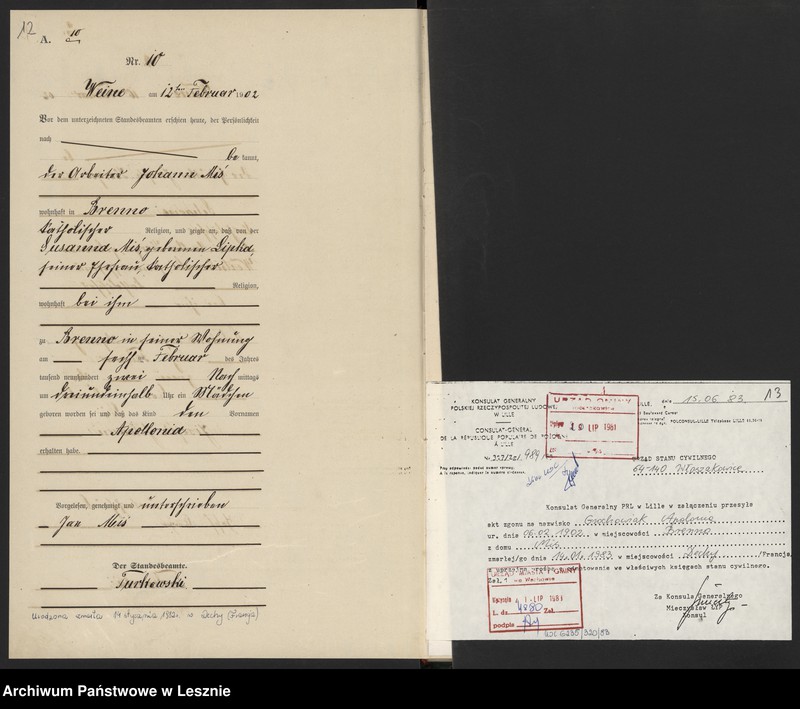 12
A. 10
Nr. 10
Weine am 12ten Februar 1902
Vor dem unterzeichneten Standesbeamten erschien heute, der Persönlichkeit
nach
be kannt,
der Arbeiter Johann Miś
wohnhaft in Brenno
katholischer Religion, und zeigte an, daß von der
Susanna Miś, geborenen Lipka,
seiner Ehefrau, katholischer
Religion,
wohnhaft bei ihm
zu Brenno in seiner Wohnung
am sechs ten Februar des Jahres
tausend neunhundert zwei Nach mittags
um dreiundeinhalb Uhr ein Mädchen
geboren worden sei und daß das Kind den Vornamen
Apollonia
erhalten habe.
Vorgelesen, genehmigt und unterschrieben
Jan Miś
Der Standesbeamte.
Turkowski
Urodzona zmarła 14 stycznia 1982r. w Dechy (Francja)
13
KONSULAT GENERALNY
POLSKIEJ RZECZYPOSPOLITEJ LUDOWEJ
W LILLE
CONSULAT-GENERAL
DE LA REPUBLIQUE POPULAIRE DE POLOGNE
À LILLE
LILLE, dnia 15.06.83.
URZĄD GMINY
LIP 1981
URZĄD STANU CYWILNEGO
64-140 Włoszakowice
Konsulat Generalny PRL w Lille w załączeniu przesyła
akt zgonu na nazwisko Grochowiak Apolonia
ur. dnia 06.02.1902 w miejscowości Brenno
z domu Miś
zmarłej/go dnia 14.01.1983 w miejscowości Dechy /Francja/
z uprzejmą prośbą o odnotowanie we właściwych księgach stanu cywilnego.
Zał. 1
URZĄD MIASTA I GMINY
we Wschowie
Wpłynęło 1 - LIP 1981
L. dz. 4880 Zał.
podpis
Za Konsula Generalnego
Mieczysław LIP
Konsul
USC 6235/320/83
Archiwum Państwowe w Lesznie